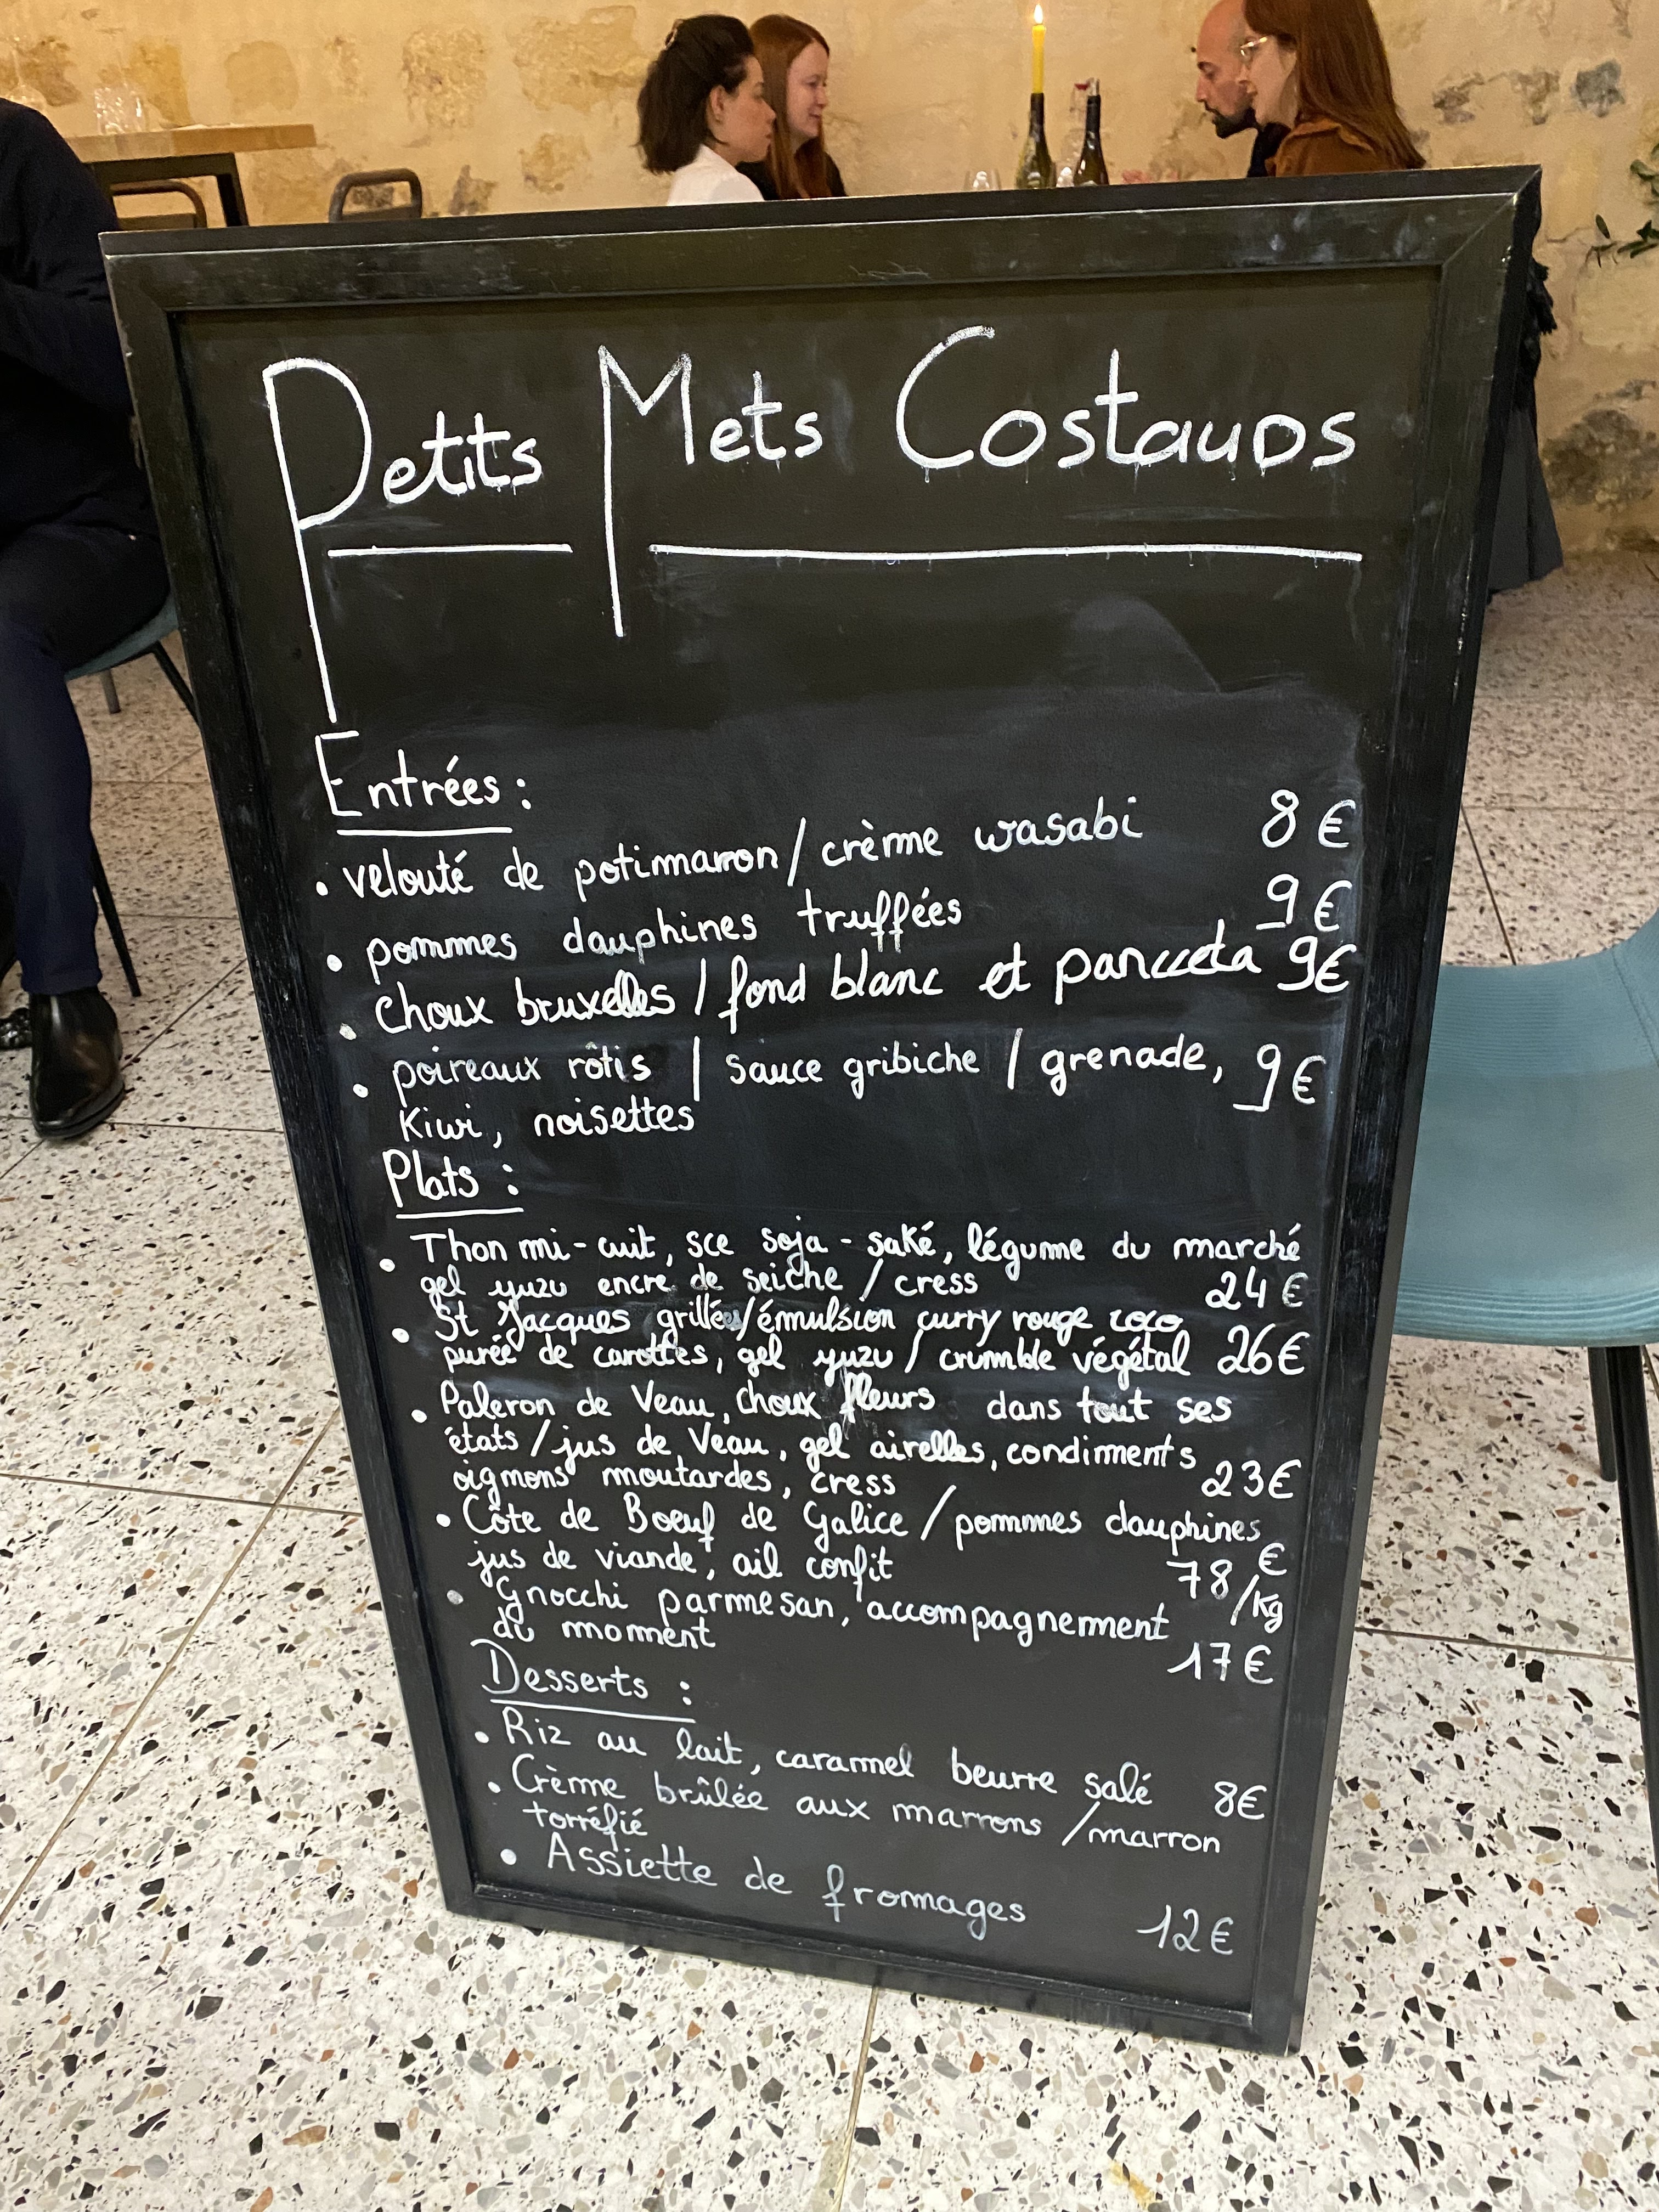 Petits Mets Costauds
Entrées :
• velouté de potimarron / crème wasabi 8 €
• pommes dauphines truffées 9 €
• Choux bruxelles / fond blanc et panceta 9€
• poireaux rôtis / sauce gribiche / grenade, 9€
Kiwi, noisettes
Plats :
• Thon mi-cuit, sce soja - saké, légume du marché
gel yuzu encre de seiche / cress 24€
• St Jacques grillées/émulsion curry rouge coco
purée de carottes, gel yuzu / crumble végétal 26€
• Paleron de Veau, choux fleurs dans tout ses
états / jus de Veau, gel airelles, condiments
oignons moutardes, cress 23€
• Côte de Boeuf de Galice / pommes dauphines
jus de viande, ail confit 78 €/kg
• Gnocchi parmesan, accompagnement
du moment 17€
Desserts :
• Riz au lait, caramel beurre salé 8€
• Crème brûlée aux marrons / marron
torréfié
• Assiette de fromages 12€